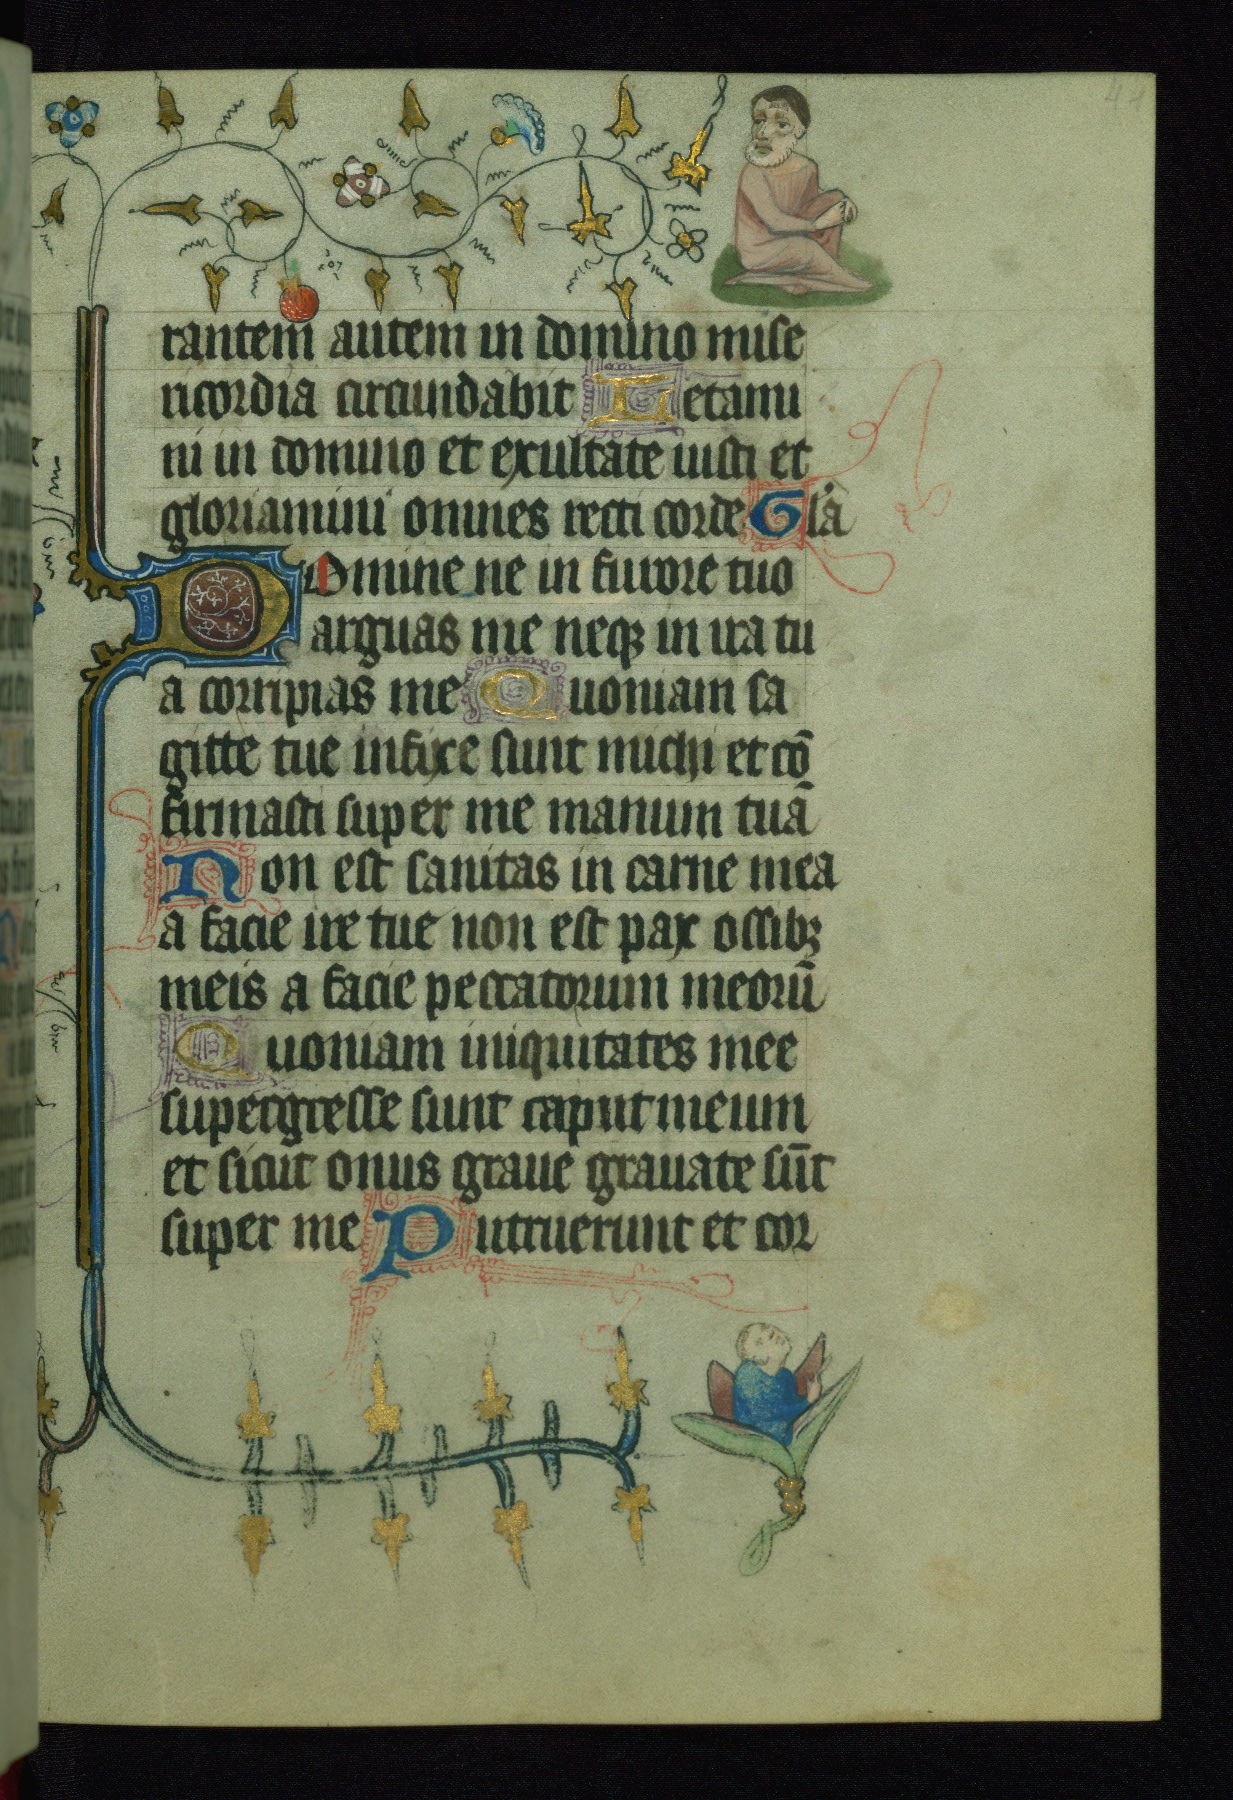 rantem autem in domino mise
ricordia circumdabit Letami
ni in domino et exultate iusti et
gloriamini omnes recti corde Glā
Domine ne in furore tuo
arguas me neqꝫ in ira tu
a corripias me Quoniam sa
gitte tue infixe sunt michi et cō
firmasti super me manum tuā
Non est sanitas in carne mea
a facie ire tue non est pax ossibꝫ
meis a facie peccatorum meorū
Quoniam iniquitates mee
supergresse sunt caput meum
et sicut onus graue grauate sūt
super me Putruerunt et cor